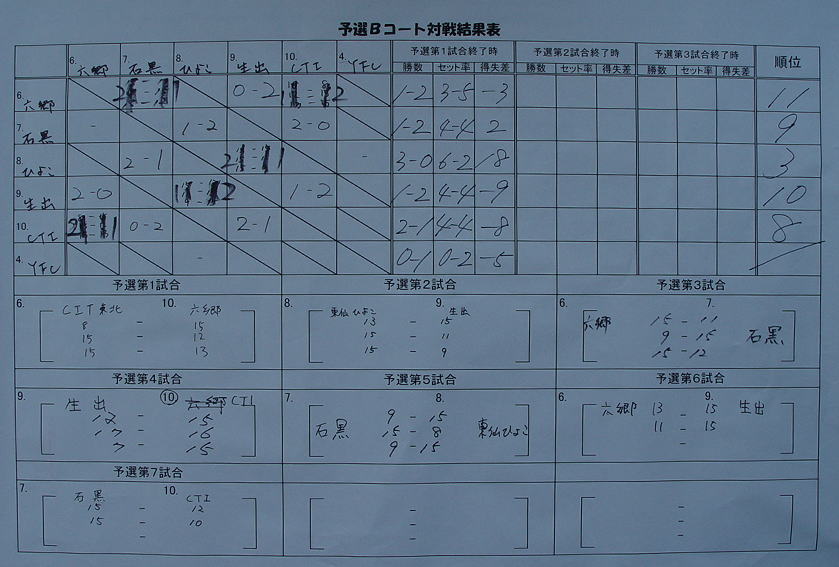 予選Bコート対戦結果表
6. 六郷 7. 石黒 8. ひよこ 9. 生出 10. CTI 4. YFC 予選第1試合終了時 予選第2試合終了時 予選第3試合終了時 順位
勝数 セット率 得失差 勝数 セット率 得失差 勝数 セット率 得失差
6. 六郷 0-2 1-2 3-5 -3 11
7. 石黒 - 1-2 2-0 1-2 4-4 2 9
8. ひよこ 2-1 - 3-0 6-2 18 3
9. 生出 2-0 1-2 1-2 4-4 -9 10
10. CTI 0-2 2-1 2-1 4-4 -8 8
4. YFC - 0-1 0-2 -5
予選第1試合 予選第2試合 予選第3試合
6. CIT東北 10. 六郷
8 - 15
15 - 12
15 - 13
8. 東仏ひよこ 9. 生出
13 - 15
15 - 11
15 - 9
6. 7.
15 - 11
六郷 9 - 15 石黒
15 - 12
予選第4試合 予選第5試合 予選第6試合
9. 生出 10 CTI
- 15
17 - 16
- 15
7. 8.
9 - 15
石黒 15 - 8 東仏ひよこ
9 - 15
6. 9.
六郷 13 - 15 生出
11 - 15
-
予選第7試合
7. 石黒 10. CTI
15 - 12
15 - 10
-
-
-
-
-
-